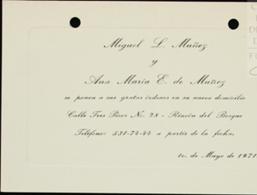 Miguel L. Muñoz
y
Ana María E. de Muñoz
se ponen a sus gratas órdenes en su nuevo domicilio
Calle Tres Picos No. 28 - Rincón del Bosque
Teléfono: 531-74-44 a partir de la fecha.
1o. de Mayo de 1971